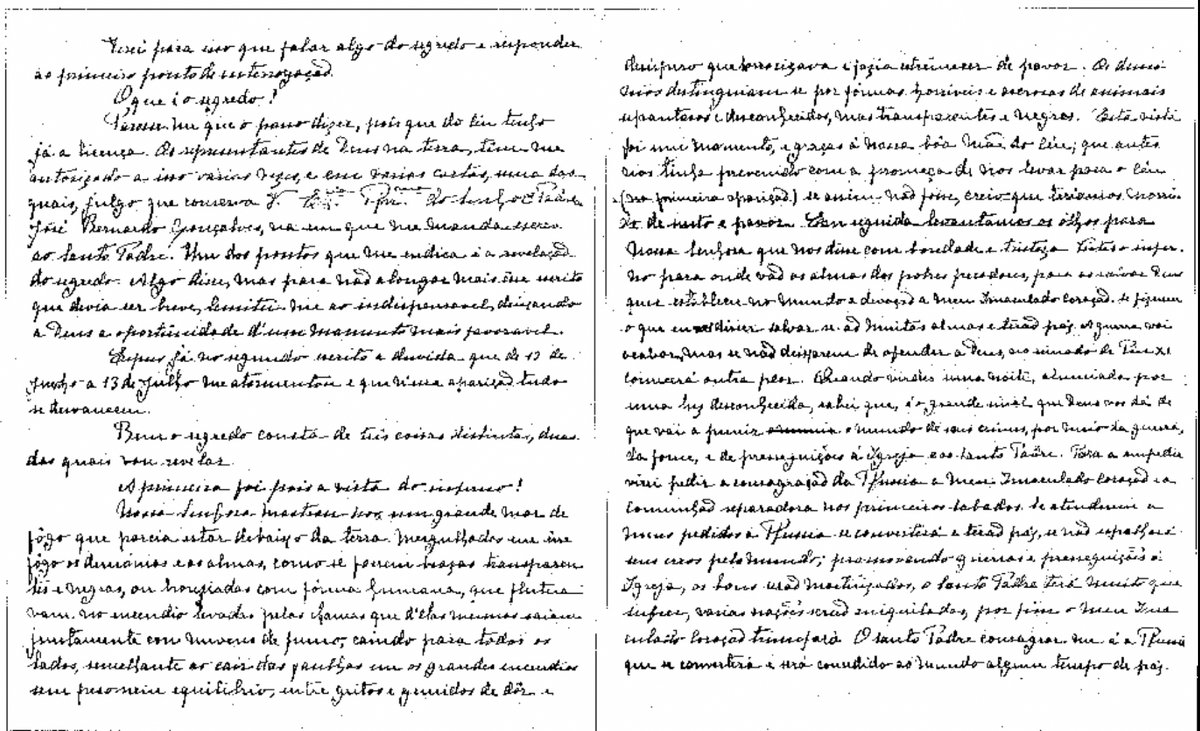 Terei para isso que falar algo do segredo e responder
ao primeiro ponto de interrogação.
O que é o segredo?
Parece-me que o posso dizer, pois que do Ceu tenho
já a licença. Os representantes de Deus na terra, tem-me
autorizado a isso varias vezes, e em varias cartas, uma das
quais, julgo que conserva V. do Senhor Padre
José Bernardo Gonçalves, na em que me manda escrever
ao Santo Padre. Um dos pontos que me indica é a revelação
do segredo. Algo disse, mas para não alongar mais esse escrito
que devia ser breve, limitei-me ao indispensavel, deixando
a Deus a oportunidade d'um momento mais favoravel.
Expus já no segundo escrito a duvida que de 13 de
Junho a 13 de Julho me atormentou e que n'essa aparição tudo
se desvaneceu.
Bem o segredo consta de três coisas distintas, duas
das quais vou revelar.
A primeira foi pois a vista do inferno!
Nossa Senhora mostrou-nos um grande mar de
fôgo que parcia estar debaixo da terra. Mergulhados em êsse
fôgo os demonios e as almas, como se fossem brasas transparen
tes e negras, ou bronziadas com fórma humana, que flutua
vam no encendio levadas pelas chamas que d'elas mesmas saiam
juntamente com nuvens de fumo, caindo para todos os
lados, semelhante ao cair das faulhas em os grandes encendios
sem peso nem equilibrio, entre gritos e gemidos de dôr e
desespero que horrorizava e fazia estremecer de pavor. Os demo
nios destinguiam-se por fórmas horriveis e ascrosas de animais
espantosos e desconhecidos, mas transparentes e negros. Esta vista
foi um momento, e graças á nossa bôa Mãe do Céu; que antes
nos tinha prevenido com a promeça de nos levar para o Céu
(na primeira aparição) se assim não fosse, creio que teriamos morri
do de susto e pavor. Em seguida, levantamos os olhos para
Nossa Senhora que nos disse com bondade e tristeza: Vistes o infer
no para onde vão as almas dos pobres pecadores, para as salvar Deus
quer establecer no mundo a devoção a meu Imaculado Coração. Se fizerem
o que eu disser salvar-se-ão muitas almas e terão paz. A guerra vai
acabar, mas se não deixarem de ofender a Deus, no reinado de Pio XI
começará outra peor. Quando virdes uma noite, alumiada por
uma luz desconhecida, sabei que é o grande sinal que Deus vos dá de
que vai a punir o mundo de seus crimes, por meio da guerra,
da fome, e de perseguições á Igreja e ao Santo Padre. Para a empedir
virei pedir a consagração da Russia a meu Imaculado Coração e a
comunhão reparadora nos primeiros sabados. Se atenderem a
meus pedidos a Russia se converterá e terão paz, se não espalhará
seus erros pelo mundo; promovendo guerras e perseguições á
Igreja, os bons serão martirizados, o Santo Padre terá muito que
sufrer, varias nações serão aniquiladas, por fim o meu Ima
culado Coração triunfará. O Santo Padre consagrar-me-á a Russia
que se converterá e será consedido ao mundo algum tempo de paz.